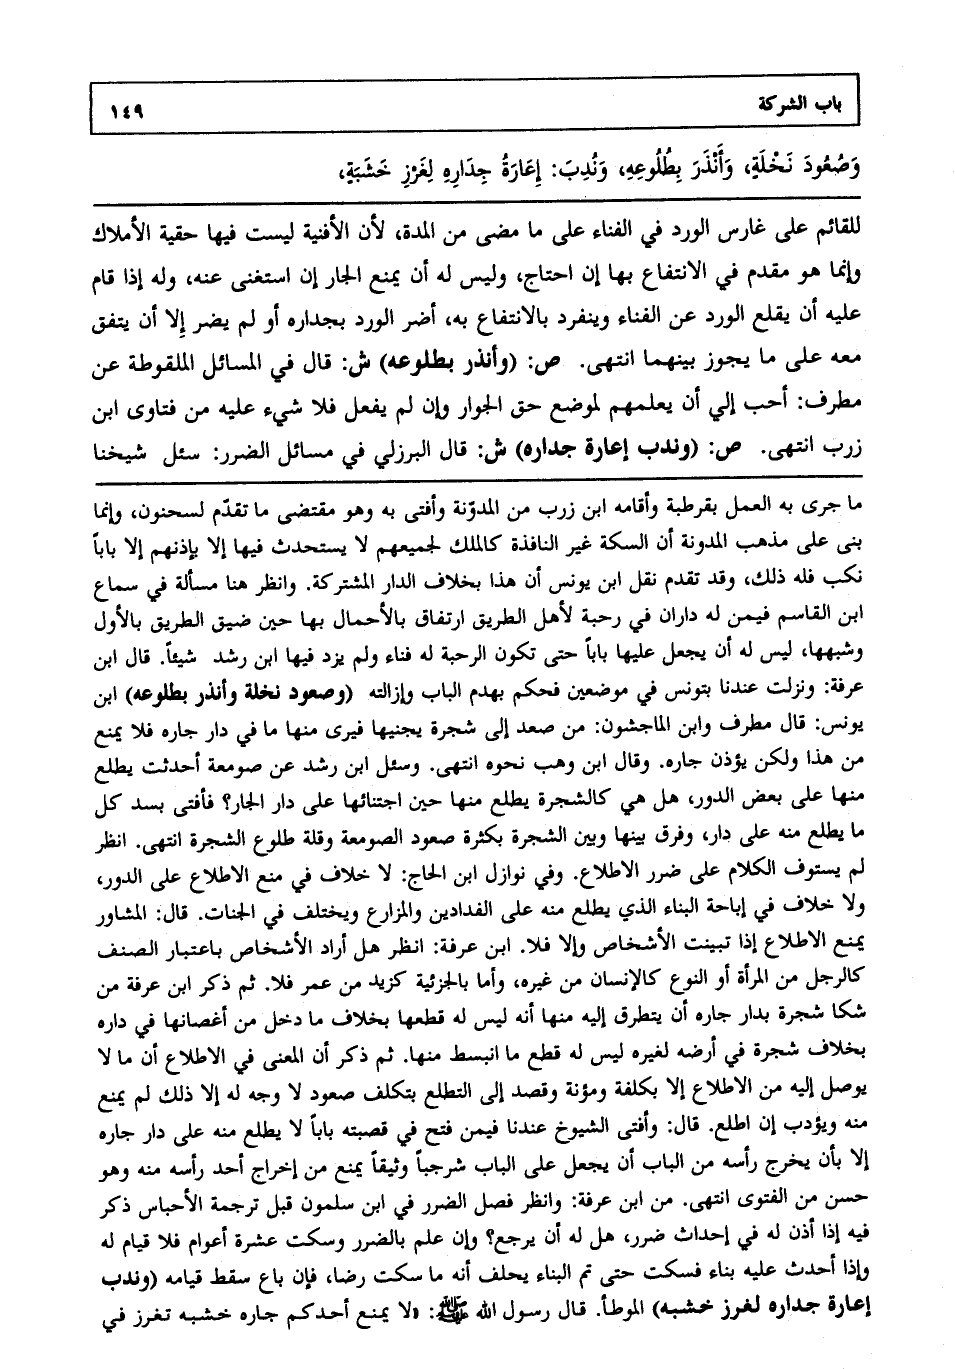 باب الشركة ١٤٩
وَصُعُودَ نَخْلَةٍ، وَأَنْذَرَ بِطُلُوعِهِ، وَنُدِبَ: إِعَارَةُ جِدَارِهِ لِغَرْزِ خَشَبَةٍ،
للقائم على غارس الورد في الفناء على ما مضى من المدة، لأن الأفنية ليست فيها حقية الأملاك
وإنما هو مقدم في الانتفاع بها إن احتاج، وليس له أن يمنع الجار إن استغنى عنه، وله إذا قام
عليه أن يقلع الورد عن الفناء وينفرد بالانتفاع به، أضر الورد بجداره أو لم يضر إلا أن يتفق
معه على ما يجوز بينهما انتهى. ص: (وأنذر بطلوعه) ش: قال في المسائل الملقوطة عن
مطرف: أحب إلي أن يعلمهم لموضع حق الجوار وإن لم يفعل فلا شيء عليه من فتاوى ابن
زرب انتهى. ص: (وندب إعارة جداره) ش: قال البرزلي في مسائل الضرر: سئل شيخنا
ما جرى به العمل بقرطبة وأقامه ابن زرب من المدوّنة وأفتى به وهو مقتضى ما تقدّم لسحنون، وإنما
بنى على مذهب المدونة أن السكة غير النافذة كالملك لجميعهم لا يستحدث فيها إلا بإذنهم إلا باباً
نكب فله ذلك، وقد تقدم نقل ابن يونس أن هذا بخلاف الدار المشتركة. وانظر هنا مسألة في سماع
ابن القاسم فيمن له داران في رحبة لأهل الطريق ارتفاق بالأحمال بها حين ضيق الطريق بالأول
وشبهها، ليس له أن يجعل عليها باباً حتى تكون الرحبة له فناء ولم يزد فيها ابن رشد شيئاً. قال ابن
عرفة: ونزلت عندنا بتونس في موضعين فحكم بهدم الباب وإزالته (وصعود نخلة وأنذر بطلوعه) ابن
يونس: قال مطرف وابن الماجشون: من صعد إلى شجرة يجنيها فيرى منها ما في دار جاره فلا يمنع
من هذا ولكن يؤذن جاره. وقال ابن وهب نحوه انتهى. وسئل ابن رشد عن صومعة أحدثت يطلع
منها على بعض الدور، هل هي كالشجرة يطلع منها حين اجتنائها على دار الجار؟ فأفتى بسد كل
ما يطلع منه على دار، وفرق بينها وبين الشجرة بكثرة صعود الصومعة وقلة طلوع الشجرة انتهى. انظر
لم يستوف الكلام على ضرر الاطلاع. وفي نوازل ابن الحاج: لا خلاف في منع الاطلاع على الدور،
ولا خلاف في إباحة البناء الذي يطلع منه على الفدادين والمزارع ويختلف في الجنات. قال: المشاور
يمنع الاطلاع إذا تبينت الأشخاص وإلا فلا. ابن عرفة: انظر هل أراد الأشخاص باعتبار الصنف
كالرجل من المرأة أو النوع كالإنسان من غيره، وأما بالجزئية كزيد من عمر فلا. ثم ذكر ابن عرفة من
شكا شجرة بدار جاره أن يتطرق إليه منها أنه ليس له قطعها بخلاف ما دخل من أغصانها في داره
بخلاف شجرة في أرضه لغيره ليس له قطع ما انبسط منها. ثم ذكر أن المعنى في الاطلاع أن ما لا
يوصل إليه من الاطلاع إلا بكلفة ومؤنة وقصد إلى التطلع بتكلف صعود لا وجه له إلا ذلك لم يمنع
منه ويؤدب إن اطلع. قال: وأفتى الشيوخ عندنا فيمن فتح في قصبته باباً لا يطلع منه على دار جاره
إلا بأن يخرج رأسه من الباب أن يجعل على الباب شرجباً وثيقاً يمنع من إخراج أحد رأسه منه وهو
حسن من الفتوى انتهى. من ابن عرفة: وانظر فصل الضرر في ابن سلمون قبل ترجمة الأحباس ذكر
فيه إذا أذن له في إحداث ضرر، هل له أن يرجع؟ وإن علم بالضرر وسكت عشرة أعوام فلا قيام له
وإذا أحدث عليه بناء فسكت حتى تم البناء يحلف أنه ما سكت رضا، فإن باع سقط قيامه (وندب
إعارة جداره لغرز خشبه) الموطأ. قال رسول الله ﷺ: «لا يمنع أحدكم جاره خشبه تغرز في